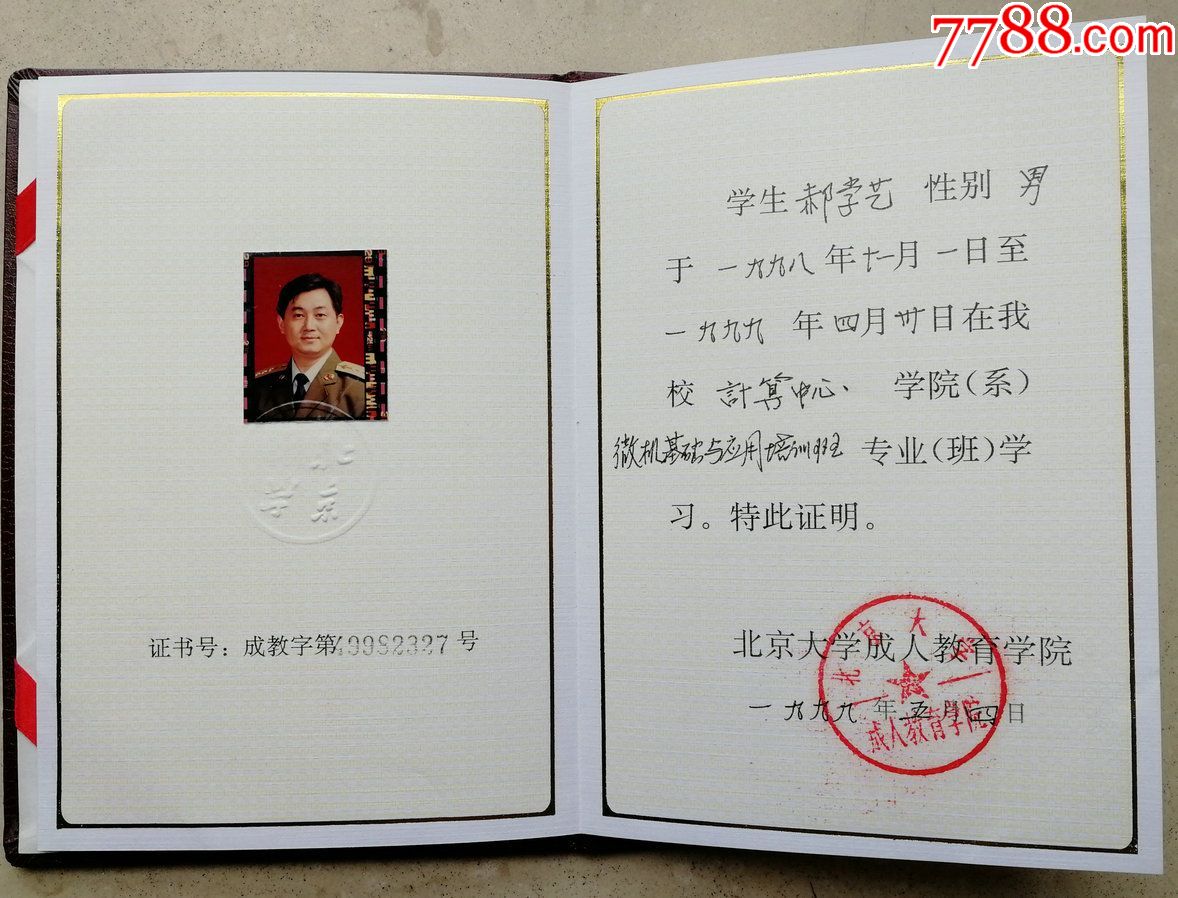 7788.com
北京
大学
证书号：成教字第49982327号
学生郝学艺 性别 男
于 一九九八年十一月一日至
一九九九 年四月卅日在我
校 計算中心 学院（系）
微机基础与应用培训班 专业（班）学
习。特此证明。
北京大学成人教育学院
一九九九年五月 日
北京大学
成人教育学院